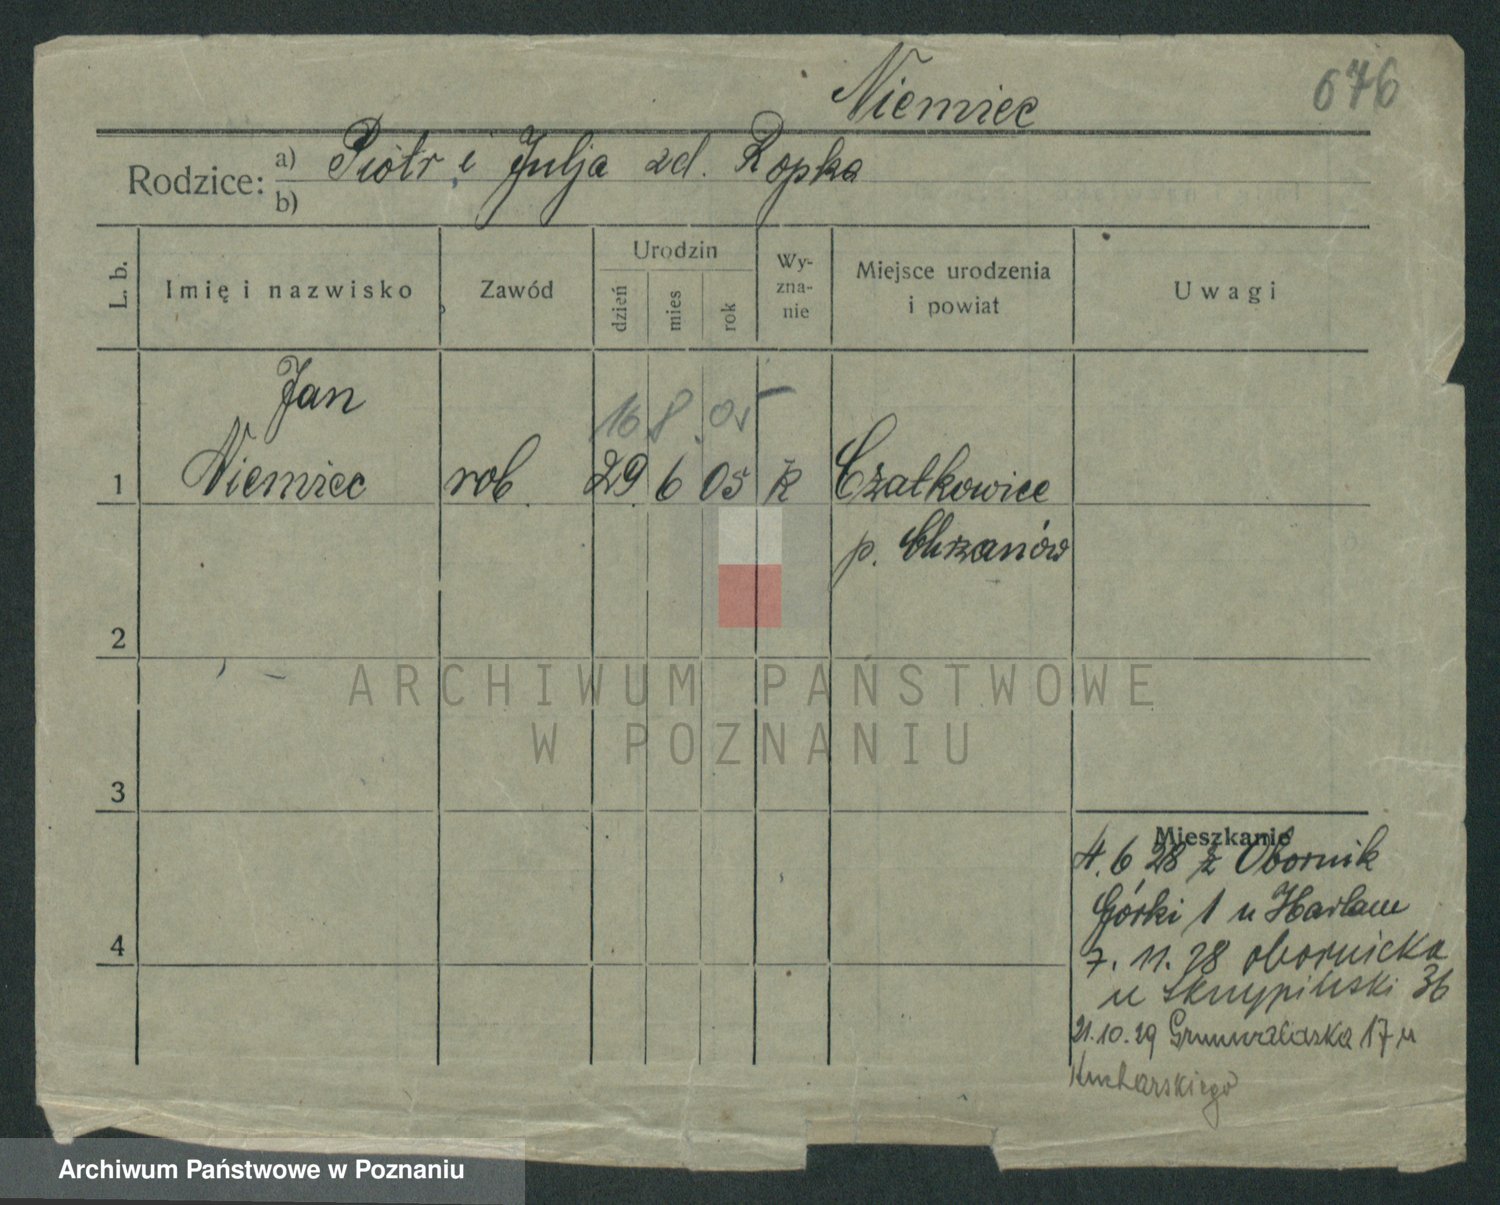 Niemiec
676
Rodzice: a) Piotr i Julja zd. Ropka
b)
L. b. Imię i nazwisko Zawód Urodzin dzień mies rok Wy-zna-nie Miejsce urodzenia i powiat Uwagi
Jan
16 8 05
1 Niemiec rob. 29 6 05 k Czatkowice
p. Chrzanów
2
ARCHIWUM PAŃSTWOWE
W POZNANIU
3
Mieszkanie
4. 6 28 z Obornik
Górki 1 u Harlam
4
7. 11. 28 obornicka
u 36
21.10.29 Grunwaldzka 17 u
Kucharskiego
Archiwum Państwowe w Poznaniu